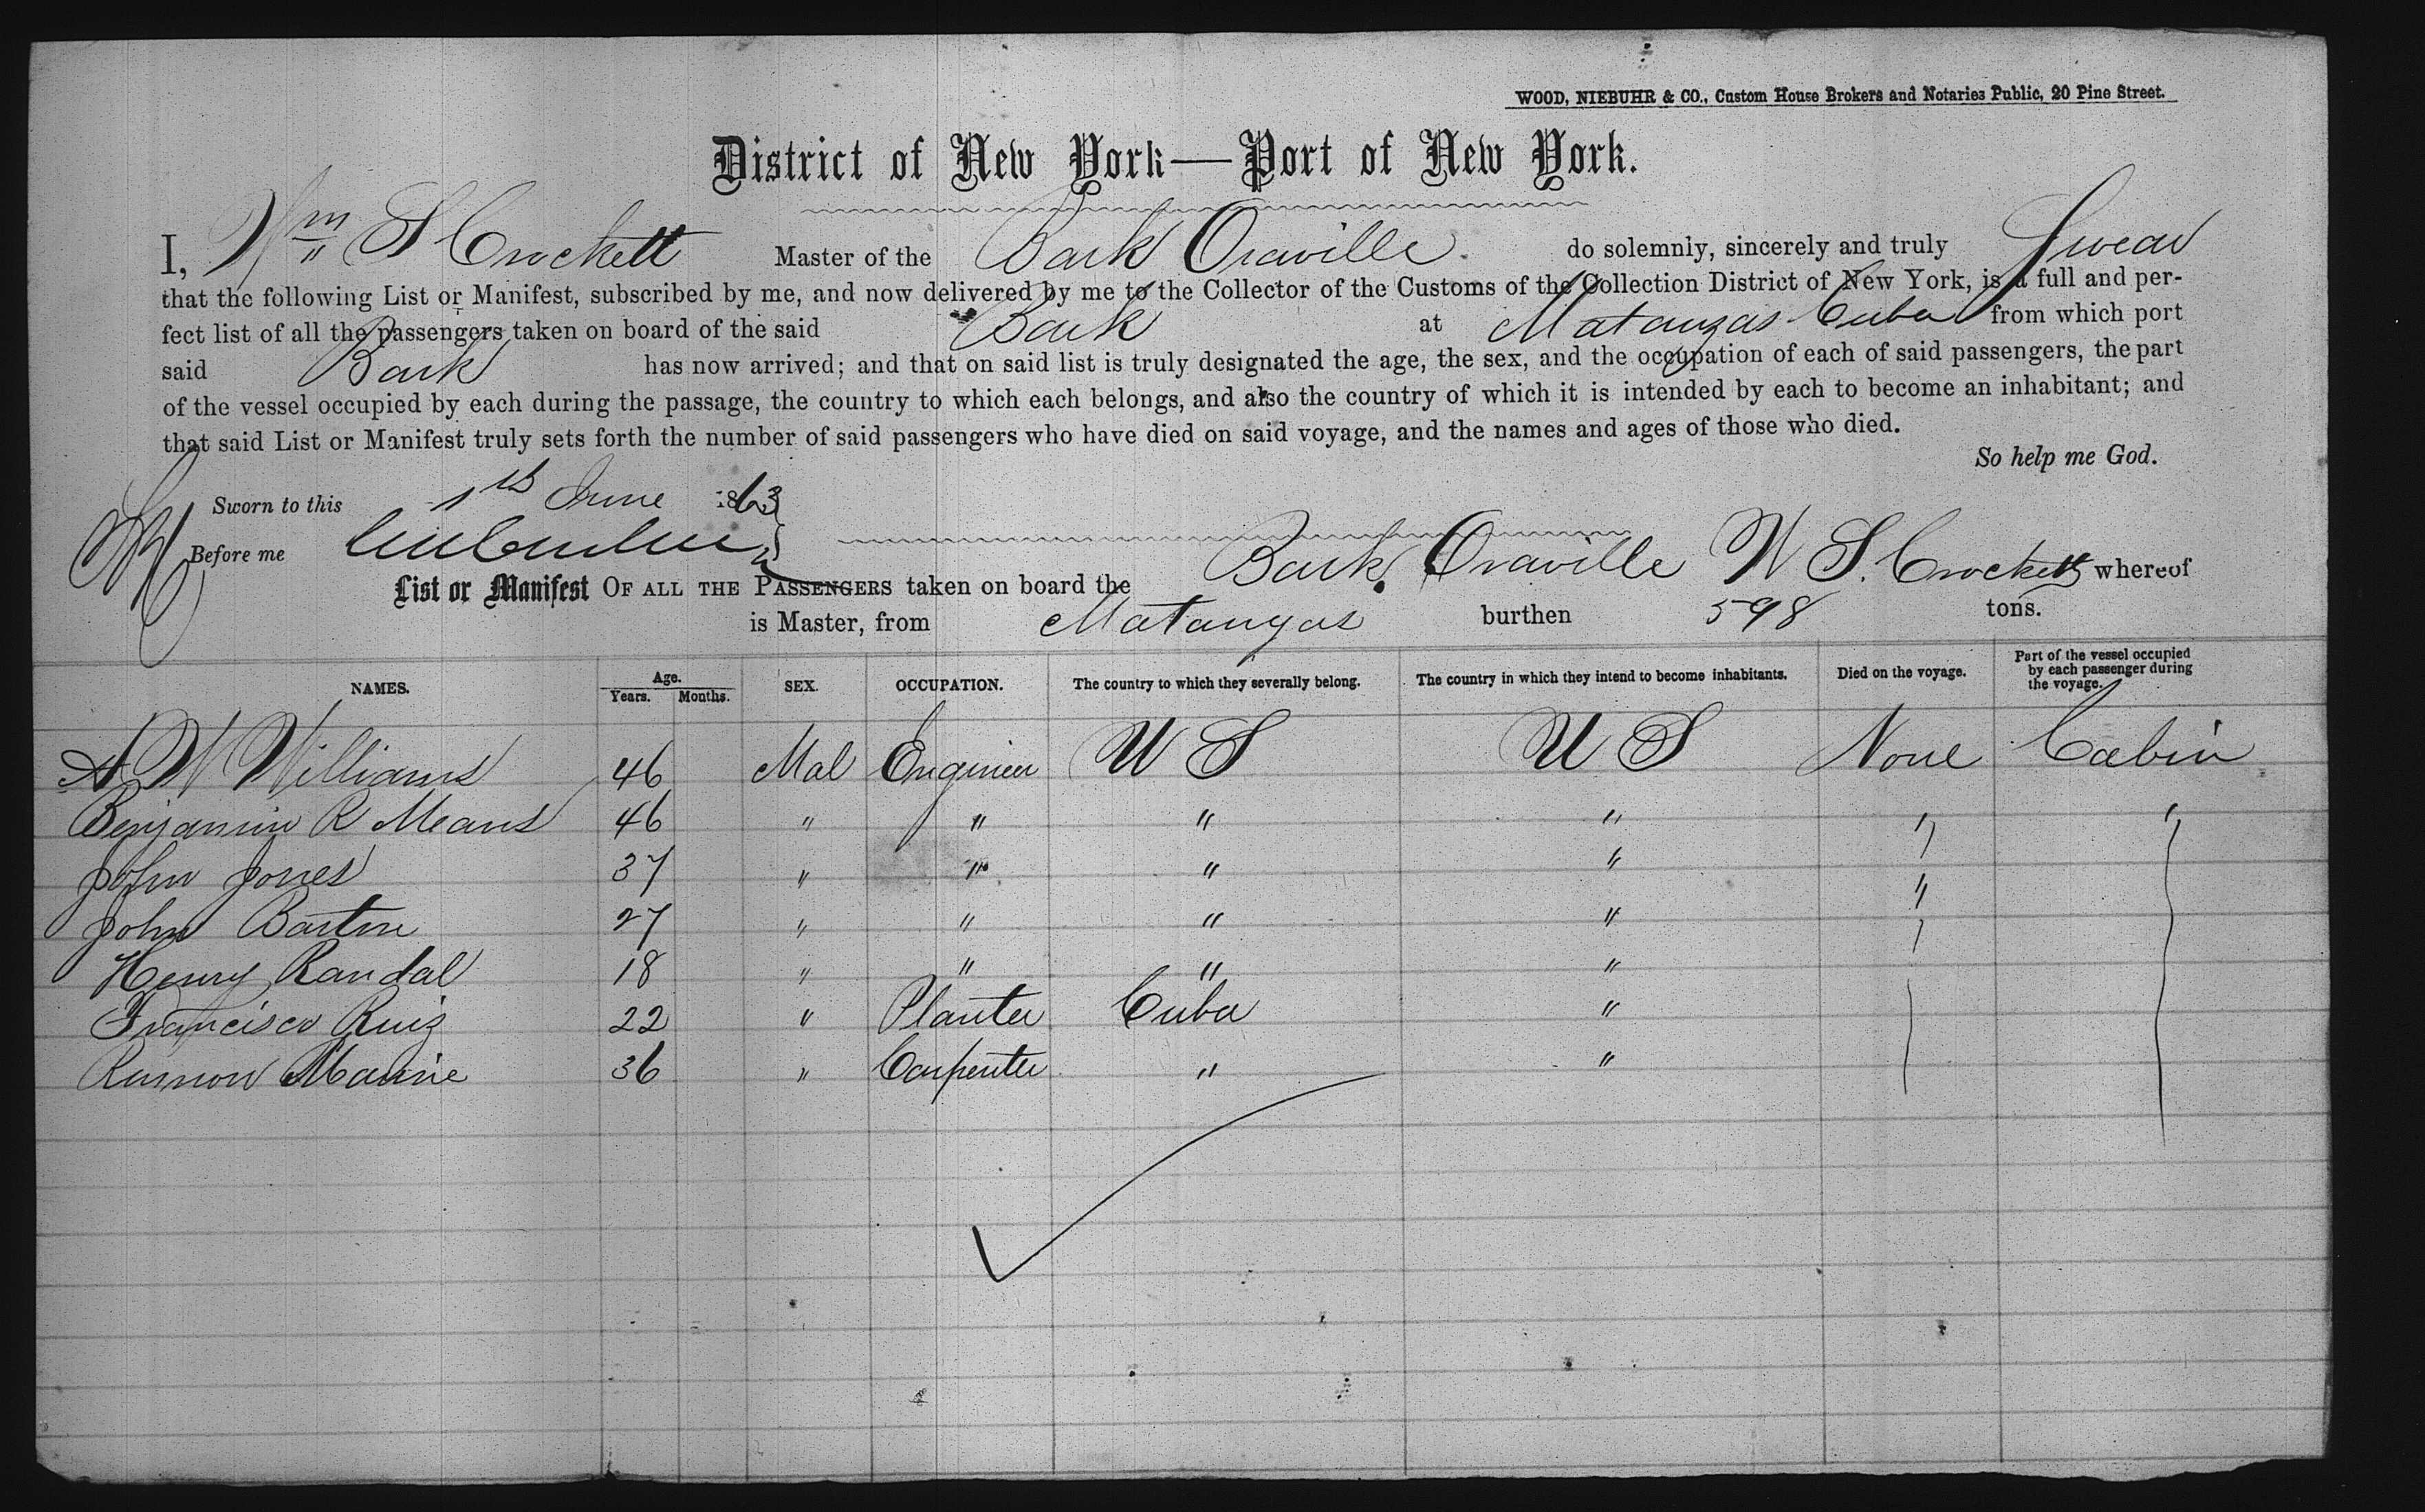 WOOD, NIEBUHR & CO., Custom House Brokers and Notaries Public, 20 Pine Street.
District of New York—Port of New York.
I, Wm S Crockett Master of the Bark Oraville do solemnly, sincerely and truly Swear
that the following List or Manifest, subscribed by me, and now delivered by me to the Collector of the Customs of the Collection District of New York, is a full and per-
fect list of all the passengers taken on board of the said Bark at Matanzas Cuba from which port
said Bark has now arrived; and that on said list is truly designated the age, the sex, and the occupation of each of said passengers, the part
of the vessel occupied by each during the passage, the country to which each belongs, and also the country of which it is intended by each to become an inhabitant; and
that said List or Manifest truly sets forth the number of said passengers who have died on said voyage, and the names and ages of those who died.
So help me God.
Sworn to this 1th June 1863
Before me
List or Manifest OF ALL THE PASSENGERS taken on board the Bark Oraville W S. Crockett whereof
is Master, from Matanzas burthen 598 tons.
NAMES. Age. Years. Months. SEX. OCCUPATION. The country to which they severally belong. The country in which they intend to become inhabitants. Died on the voyage. Part of the vessel occupied by each passenger during the voyage.
A W Williams 46 Mal Engineer U S U S None Cabin
Benjamin R Means 46 " " " " " "
John Jones 37 " " " " "
John Barton 27 " " " "
Henry Randal 18 " " " "
Francisco Ruiz 22 " Planter Cuba "
Ramon 36 " Carpenter " "